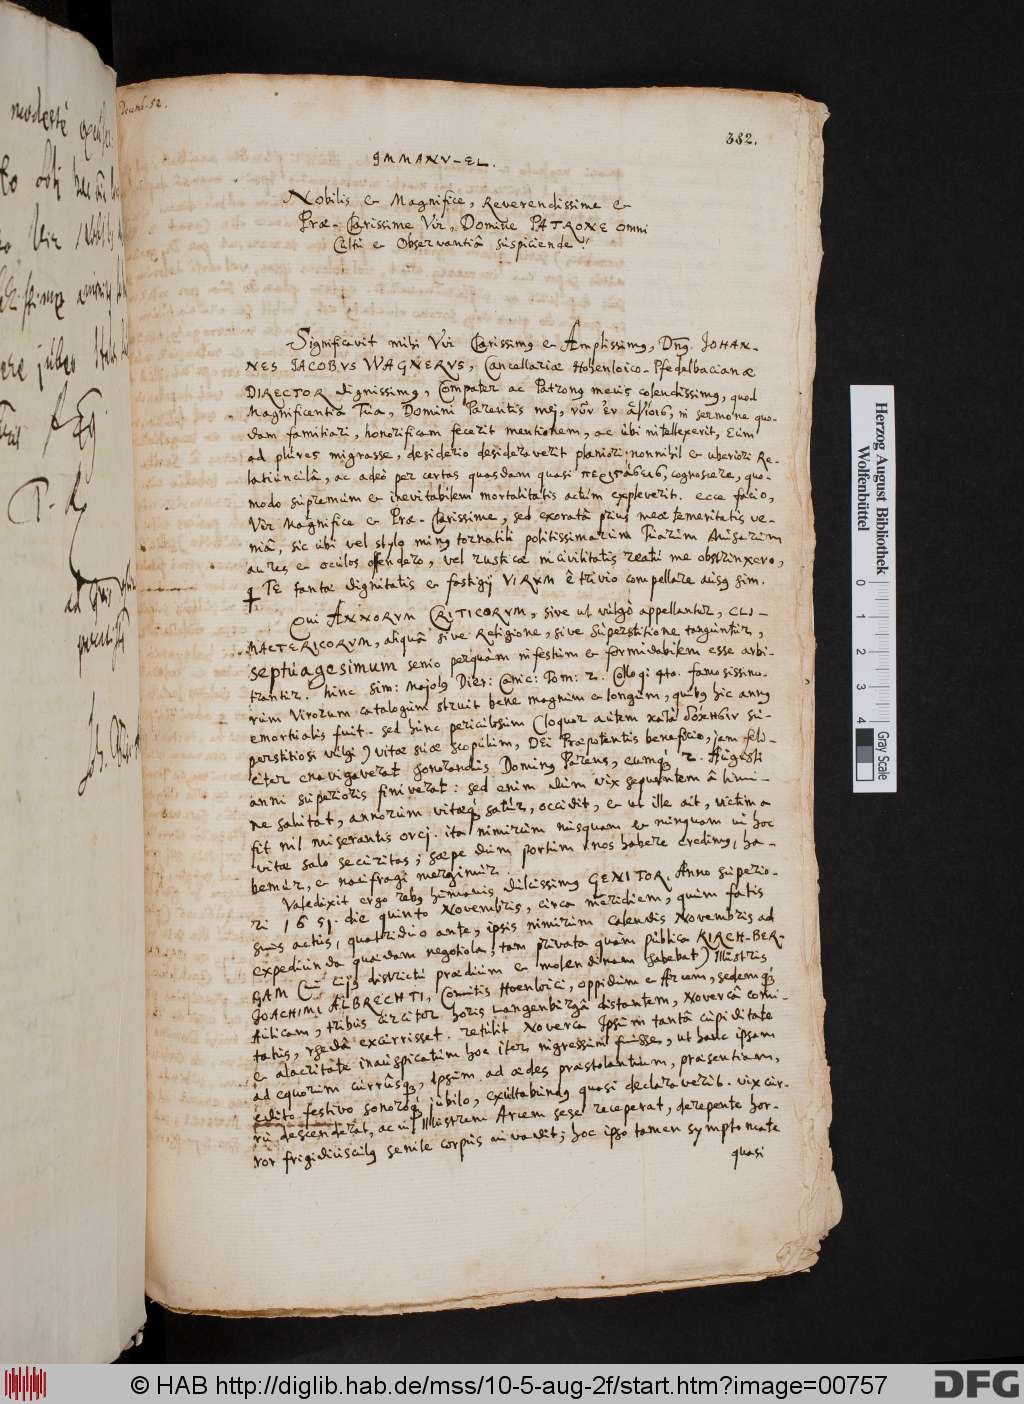 382.
IMMANV-EL.
Nobilis et Magnifice, Reverendissime et
Præ-Clarissime Vir, Domine PATRONE omni
Cultu et Observantiâ suspiciende!
Significavit mihi Vir Clarissimꝰ et Amplissimꝰ, Dnꝰ. JOHAN-
NES JACOBVS WAGNERVS, Cancellariæ Hohenloico-Pfedelbacianæ
DIRECTOR dignissimꝰ, Compater ac Patronꝰ meus colendissimꝰ, quod
Magnificentia Tua, Domini Parentis mej, νῦν ἐν ἁγίοις, in sermone quo-
dam familiari, honorificam fecerit mentionem, ac ubi intellexerit, Eum
ad plures migrasse, desiderio desideraverit pleniori nonnihil et uberiori Re-
latiunculâ, ac adeò per certas quasdam quasi περιστάσεις, cognoscere, quo-
modo supremum et inevitabilem mortalitatis actum expleverit. Ecce facio,
Vir Magnifice et Præ-Clarissime, sed exoratâ prius meæ temeritatis ve-
niâ, sic ubi vel stylo minꝰ tornatili politissimarum Tuarum Aurium
aures et oculos offendero, vel rusticæ incivilitatis reatu me obstrinxero,
TE tantæ dignitatis et fastigij VIRVM è trivio compellare ausꝰ sim.
Qui ANNORVM CRITICORVM, sive ut vulgò appellantur, CLI-
MACTERICORVM, aliquâ sive Religione, sive Superstitione tanguntur,
septuagesimum senio perquàm infestum et formidabilem esse arbi-
trantur. hinc Sim: Majolꝰ Dier: Canic: Tom: 2. Colloq: 4to. famosissimo-
rum Virorum catalogum struit bene magnum et longum, quibꝰ hic annꝰ
emortualis fuit. sed hunc periculosum (loquor autem κατὰ δόκησιν su-
perstitiosi vulgi) vitæ suæ scopulum, DEI Præpotentis beneficio, jam feli-
citer enavigaverat honorandus Dominꝰ Parens, eumq; 2. Augusti
anni superioris finiverat: sed enim dum vix sequentem â limi-
ne salutat, annorum vitæq; satur, occidit, et ut ille ait, victima
fit nil miserantis orcj. ita nimirum nusquam et nunquam in hoc
vitæ salo securitas; sæpe dum portum nos habere credimus, ha-
bemur, et naufragi mergimur.
Valedixit ergo rebꝰ humanis dulcissimꝰ GENITOR. Anno superio-
ri 1651. die quinto Novembris, circa meridiem, quum fatis
suis actus, quatriduo ante, ipsis nimirum Calendis Novembris ad
expediunda quædam negotiola, tam privata quàm publica KIRCH-BER-
GAM (in cujꝰ districtu prædium et molendinam habebat) Illustris
JOACHIMI ALBRECHTI, Comitis Hoenloici, oppidum et Arcem, sedemq;
Aulicam, tribus circiter horis Langenburgâ distantem, Novercâ comi-
tatus, rhedâ excurrisset. retulit Noverca Ipsum tantâ cupiditate
et alacritate inauspicatum hoc iter ingressum fuisse, ut hanc ipsam
ad equorum currusq;, Ipsum ad ædes præstolantium, præsentiam,
edito festivo sonoroq; jubilo, exultabundꝰ quasi declaraverit. vix cur-
ru descenderat, ac in Illustrem Arcem sese receperat, derepente hor-
ror frigidiusculꝰ senile corpus invadit; hoc ipso tamen symptomate
quasi
Herzog August Bibliothek
Wolfenbüttel
0 1 2 3 4
Gray Scale
© HAB http://diglib.hab.de/mss/10-5-aug-2f/start.htm?image=00757
DFG